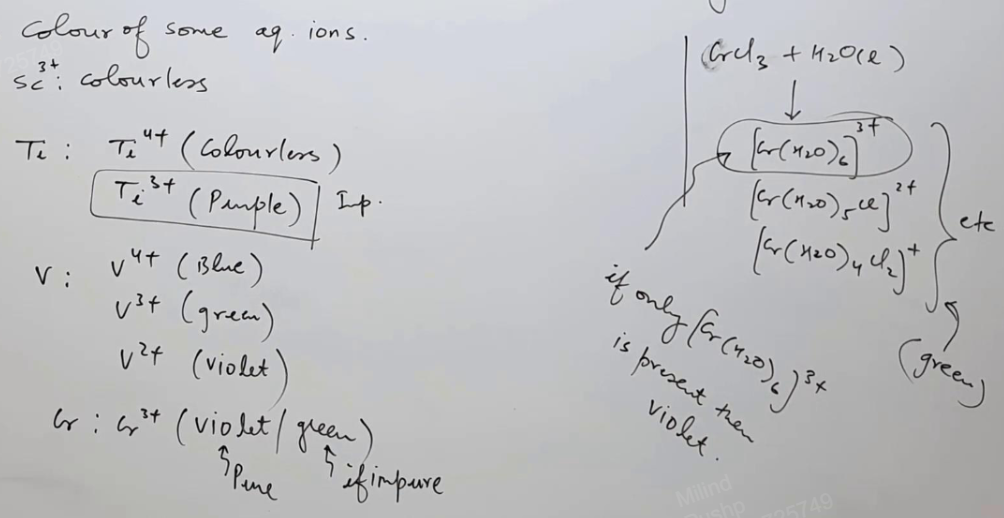 Colour of some aq. ions.
Sc³⁺: colourless
Ti : Ti⁴⁺ (Colourless)
Ti³⁺ (Purple) Imp.
V : V⁴⁺ (Blue)
V³⁺ (green)
V²⁺ (violet)
Cr : Cr³⁺ (violet/green)
Pure if impure
CrCl₃ + H₂O(l)
[Cr(H₂O)₆]³⁺
[Cr(H₂O)₅Cl]²⁺
[Cr(H₂O)₄Cl₂]⁺
etc
(green)
if only [Cr(H₂O)₆]³⁺
is present then
violet.
Milind
Pushp
25749